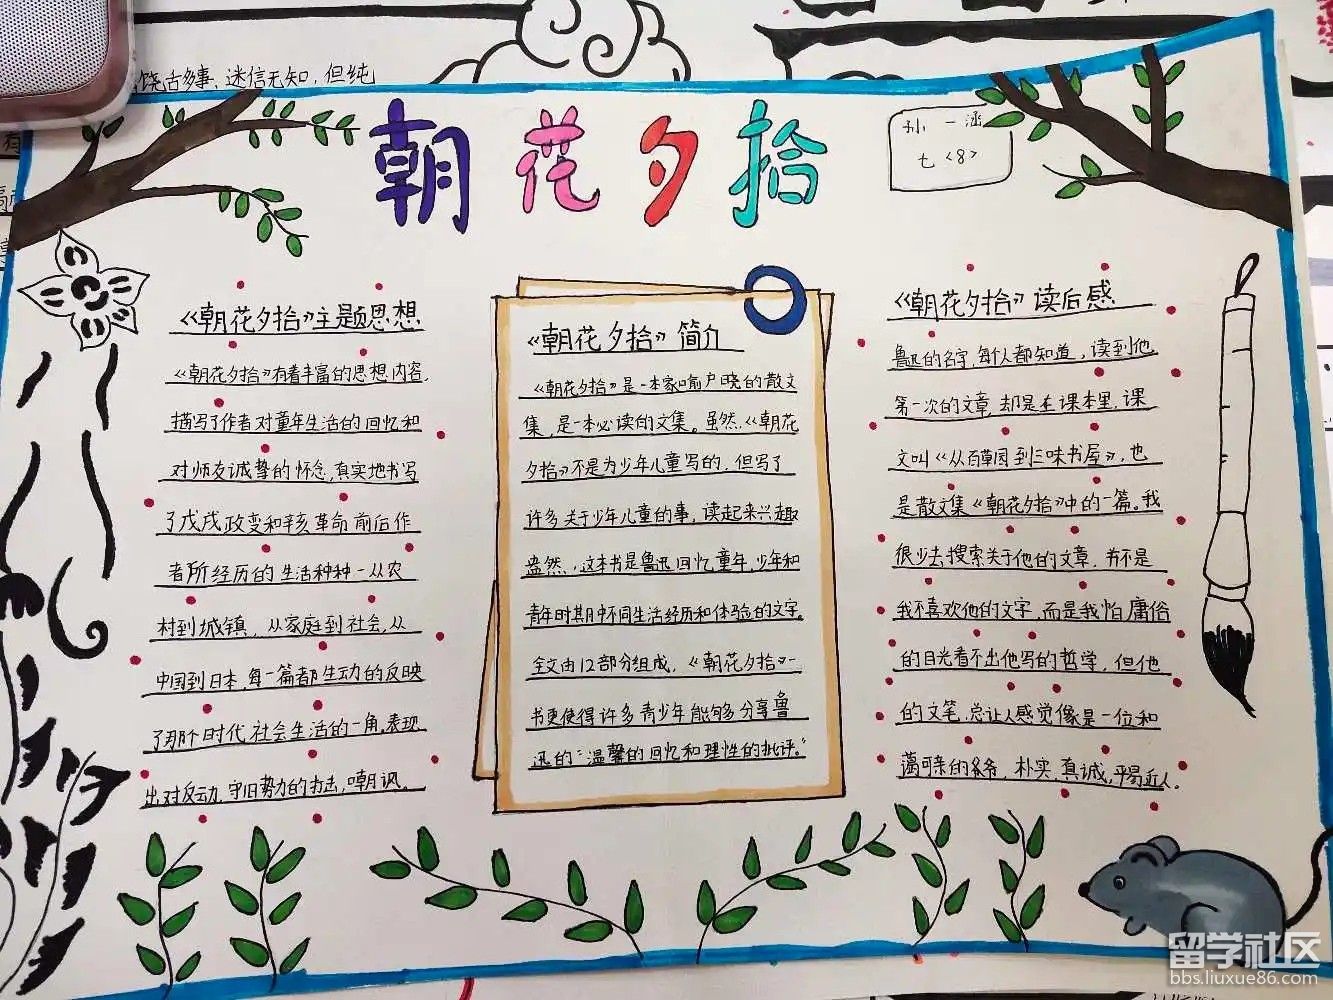 饶古多事,迷信无知,但纯
朝花夕拾
孙一涵
七<8>
《朝花夕拾》主题思想
《朝花夕拾》有着丰富的思想内容,
描写了作者对童年生活的回忆和
对师友诚挚的怀念,真实地书写
了戊戌政变和辛亥革命前后作
者所经历的生活种种一从农
村到城镇,从家庭到社会,从
中国到日本,每一篇都生动的反映
了那个时代社会生活的一角,表现
出对反动,守旧势力的抨击,嘲讽。
《朝花夕拾》简介
《朝花夕拾》是一本家喻户晓的散文
集,是一本必读的文集。虽然,《朝花
夕拾》不是为少年儿童写的,但写了
许多关于少年儿童的事,读起来兴趣
盎然,这本书是鲁迅回忆童年,少年和
青年时期中不同生活经历和体验的文字。
全文由12部分组成,《朝花夕拾》一
书更使得许多青少年能够分享鲁
迅的“温馨的回忆和理性的批评。”
《朝花夕拾》读后感
鲁迅的名字,每个人都知道,读到他
第一次的文章,却是在课本里,课
文叫《从百草园到三味书屋》,也
是散文集《朝花夕拾》中的一篇。我
很少去搜索关于他的文章,并不是
我不喜欢他的文字,而是我怕庸俗
的目光看不出他写的哲学,但他
的文笔,总让人感觉像是一位和
蔼可亲的爷爷,朴实,真诚,平易近人。
留学社区
bbs.liuxue86.com